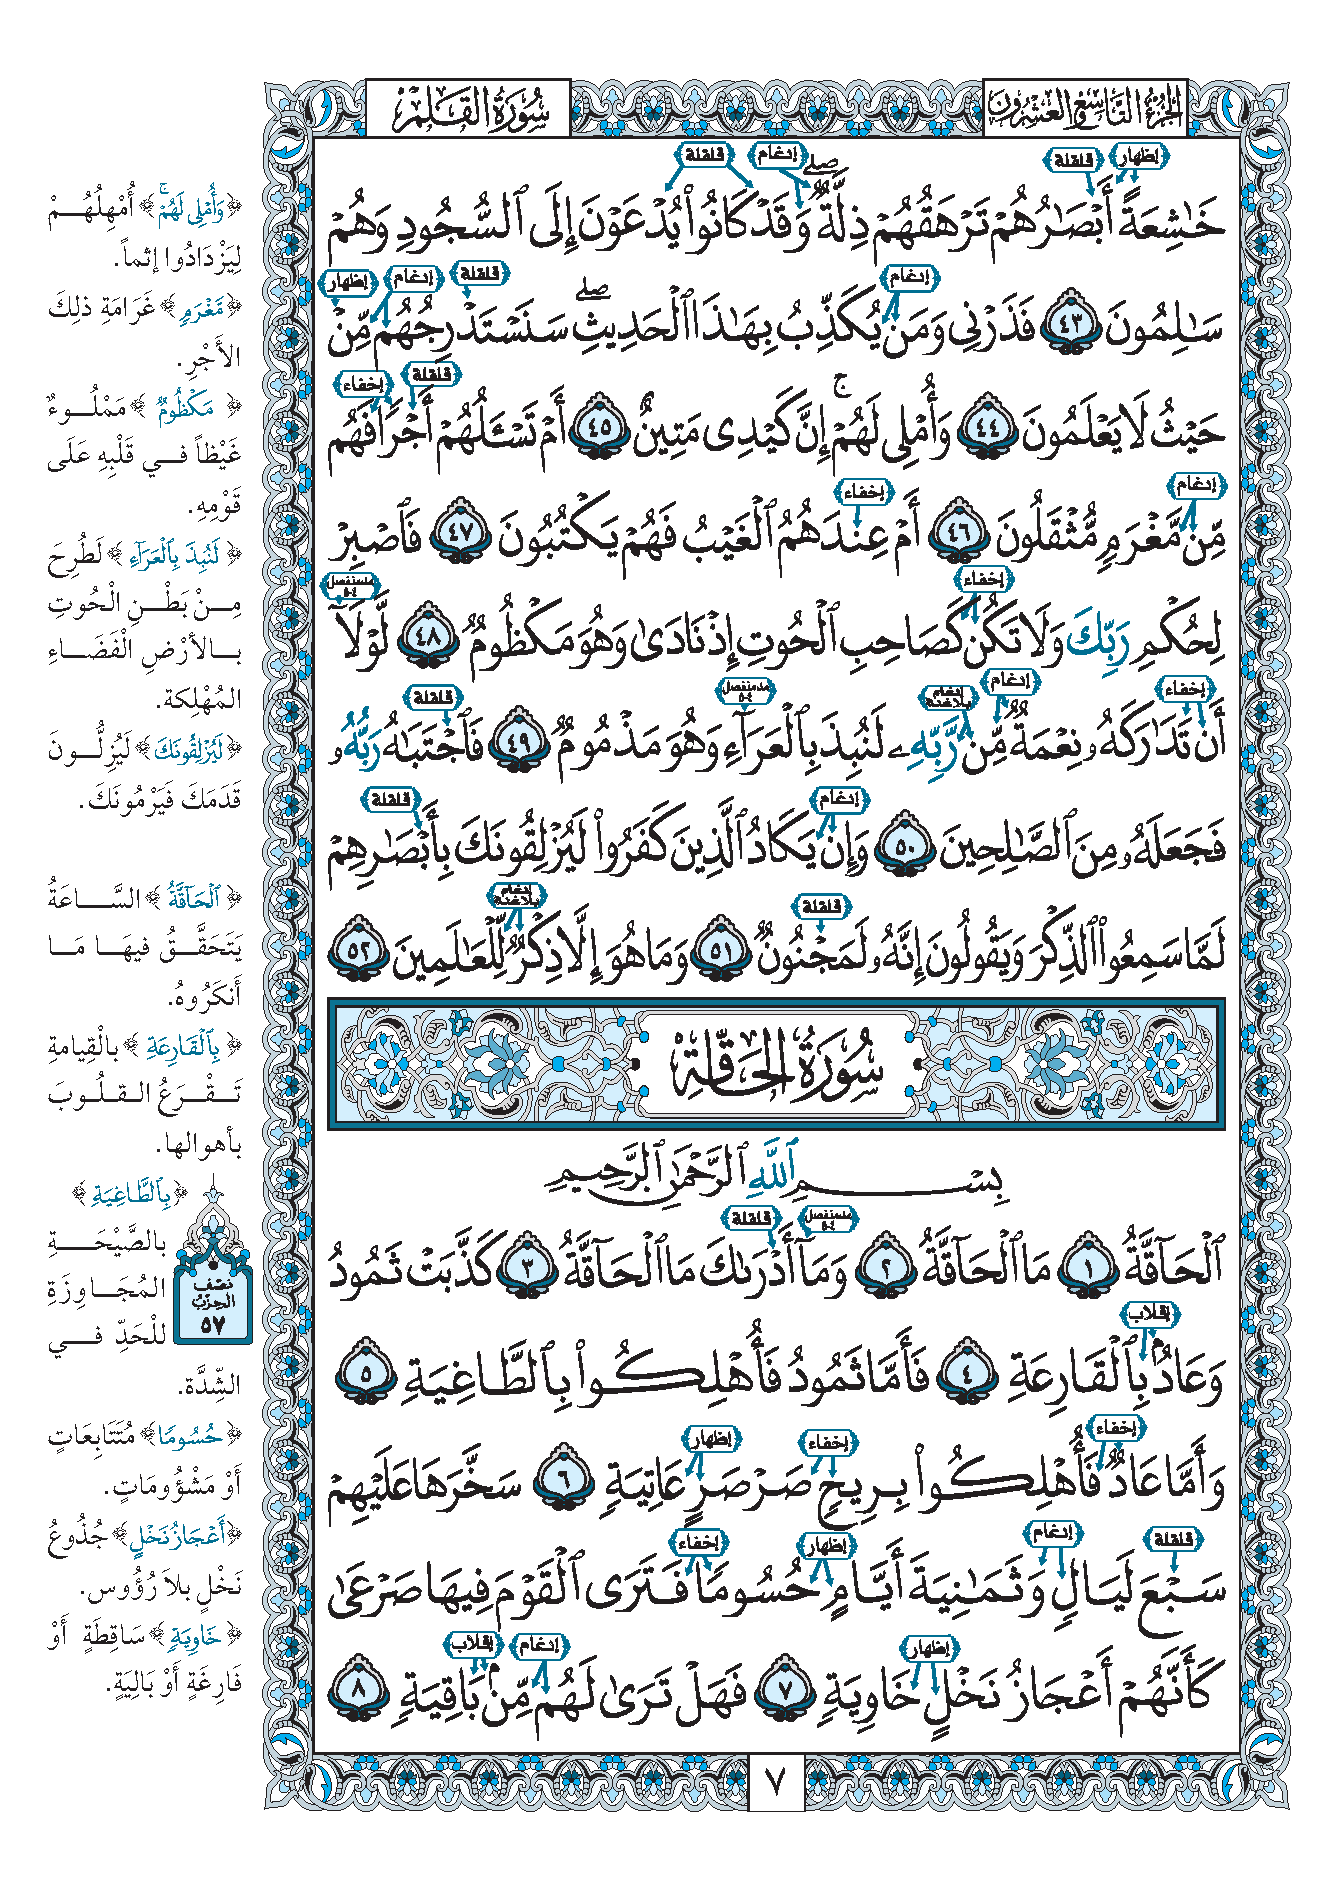 الجزء التاسع والعشرون
سورة القلم
إظهار قلقلة إدغام قلقلة
خَٰشِعَةً أَبْصَٰرُهُمْ تَرْهَقُهُمْ ذِلَّةٌ ۖ وَقَدْ كَانُوا۟ يُدْعَوْنَ إِلَى ٱلسُّجُودِ وَهُمْ
إدغام قلقلة إدغام إظهار
سَٰلِمُونَ ٤٣ فَذَرْنِى وَمَن يُكَذِّبُ بِهَٰذَا ٱلْحَدِيثِ ۖ سَنَسْتَدْرِجُهُم مِّنْ
قلقلة إخفاء
حَيْثُ لَا يَعْلَمُونَ ٤٤ وَأُمْلِى لَهُمْ ۚ إِنَّ كَيْدِى مَتِينٌ ٤٥ أَمْ تَسْـَٔلُهُمْ أَجْرًا فَهُم
إدغام إخفاء
مِّن مَّغْرَمٍ مُّثْقَلُونَ ٤٦ أَمْ عِندَهُمُ ٱلْغَيْبُ فَهُمْ يَكْتُبُونَ ٤٧ فَٱصْبِرْ
إخفاء مد منفصل ٤-٥
لِحُكْمِ رَبِّكَ وَلَا تَكُن كَصَاحِبِ ٱلْحُوتِ إِذْ نَادَىٰ وَهُوَ مَكْظُومٌ ٤٨ لَّوْلَآ
إخفاء إدغام إدغام بلاغنة مد منفصل ٤-٥ قلقلة
أَن تَدَٰرَكَهُۥ نِعْمَةٌ مِّن رَّبِّهِۦ لَنُبِذَ بِٱلْعَرَآءِ وَهُوَ مَذْمُومٌ ٤٩ فَٱجْتَبَٰهُ رَبُّهُۥ
إدغام قلقلة
فَجَعَلَهُۥ مِنَ ٱلصَّٰلِحِينَ ٥٠ وَإِن يَكَادُ ٱلَّذِينَ كَفَرُوا۟ لَيُزْلِقُونَكَ بِأَبْصَٰرِهِمْ
قلقلة إدغام بلاغنة
لَمَّا سَمِعُوا۟ ٱلذِّكْرَ وَيَقُولُونَ إِنَّهُۥ لَمَجْنُونٌ ٥١ وَمَا هُوَ إِلَّا ذِكْرٌ لِّلْعَٰلَمِينَ ٥٢
سورة الحاقة
بِسْمِ ٱللَّهِ ٱلرَّحْمَٰنِ ٱلرَّحِيمِ
مد منفصل ٤-٥ قلقلة
ٱلْحَآقَّةُ ١ مَا ٱلْحَآقَّةُ ٢ وَمَآ أَدْرَىٰكَ مَا ٱلْحَآقَّةُ ٣ كَذَّبَتْ ثَمُودُ
إقلاب
وَعَادٌۢ بِٱلْقَارِعَةِ ٤ فَأَمَّا ثَمُودُ فَأُهْلِكُوا۟ بِٱلطَّاغِيَةِ ٥
إخفاء إخفاء إظهار
وَأَمَّا عَادٌ فَأُهْلِكُوا۟ بِرِيحٍ صَرْصَرٍ عَاتِيَةٍ ٦ سَخَّرَهَا عَلَيْهِمْ
قلقلة إدغام إظهار إخفاء
سَبْعَ لَيَالٍ وَثَمَٰنِيَةَ أَيَّامٍ حُسُومًا فَتَرَى ٱلْقَوْمَ فِيهَا صَرْعَىٰ
إظهار إدغام إقلاب
كَأَنَّهُمْ أَعْجَازُ نَخْلٍ خَاوِيَةٍ ٧ فَهَلْ تَرَىٰ لَهُم مِّنۢ بَاقِيَةٍ ٨
٧
﴿وَأُمْلِى لَهُمْ ۚ﴾ أُمْهِلُهُمْ
لِيَزْدَادُوا إثماً.
﴿مَّغْرَمٍ﴾ غَرَامَةِ ذلِكَ
الأَجْرِ.
﴿مَكْظُومٌ﴾ مَمْلُوءٌ
غَيْظاً في قَلْبِهِ عَلَى
قَوْمِهِ.
﴿لَنُبِذَ بِٱلْعَرَآءِ﴾ لَطُرِحَ
مِنْ بَطْنِ الْحُوتِ
بالأرْضِ الْفَضَاءِ
المُهْلِكة.
﴿لَيُزْلِقُونَكَ﴾ لَيُزِلُّونَ
قَدَمَكَ فَيَرْمُونَكَ.
﴿ٱلْحَآقَّةُ﴾ السَّاعَةُ
يَتَحَقَّقُ فيهَا مَا
أَنكَرُوهُ.
﴿بِٱلْقَارِعَةِ﴾ بالْقِيامةِ
تَقْرَعُ القلُوبَ
بأهوالها.
﴿بِٱلطَّاغِيَةِ﴾
بالصَّيْحَةِ
المُجَاوِزَةِ
للْحَدِّ في
الشِّدَّة.
نصف
الحزب
٥٧
﴿حُسُومًا﴾ مُتَتَابِعَاتٍ
أَوْ مَشْؤُومَاتٍ.
﴿أَعْجَازُ نَخْلٍ﴾ جُذُوعُ
نَخْلٍ بلَا رُؤُوس.
﴿خَاوِيَةٍ﴾ سَاقِطَةٍ أَوْ
فَارِغَةٍ أَوْ بَالِيَةٍ.